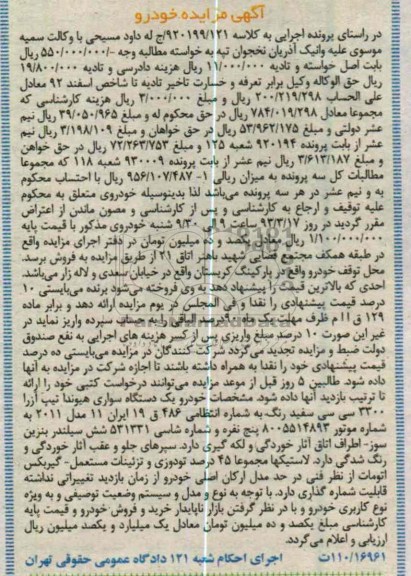 آگهی مزایده خودرو
در راستای پرونده اجرایی به کلاسه ۹۲۰۱۹۹/۱۲۱/ج له داود مسیحی با وکالت سمیه
موسوی علیه وانیک آذریان نخجوان تپه به خواسته مطالبه وجه ۵۵۰/۰۰۰/۰۰۰ ریال
بابت اصل خواسته و تادیه ۱۱/۰۰۰/۰۰۰ ریال هزینه دادرسی و تادیه ۱۹/۸۰۰/۰۰۰
ریال حق الوکاله وکیل برابر تعرفه و خسارت تاخیر تادیه تا شاخص اسفند ۹۲ معادل
علی الحساب ۲۰۰/۲۱۹/۲۹۸ ریال و مبلغ ۳/۰۰۰/۰۰۰ ریال هزینه کارشناسی که
مجموعا معادل ۷۸۴/۰۱۹/۲۹۸ ریال در حق محکوم له و مبلغ ۳۹/۰۵۰/۹۶۵ ریال نیم
عشر دولتی و مبلغ ۵۳/۹۶۲/۱۷۵ ریال در حق خواهان و مبلغ ۳/۱۹۸/۱۰۹ ریال نیم
عشر از بابت پرونده ۹۲۰۱۹۴ شعبه ۱۲۵ و مبلغ ۷۲/۲۶۳/۷۵۳ ریال در حق خواهان
و مبلغ ۳/۶۱۳/۱۸۷ ریال نیم عشر از بابت پرونده ۹۳۰۰۰۹ شعبه ۱۱۸ که مجموعا
مطالبات کل سه پرونده به میزان ریالی ۹۵۶/۱۰۷/۴۸۷-۱ ریال با احتساب محکوم
به و نیم عشر در هر سه پرونده می‌باشد لذا بدینوسیله خودروی متعلق به محکوم
علیه توقیف و ارجاع به کارشناسی و پس از کارشناسی و مصون ماندن از اعتراض
مقرر گردید در روز ۹۳/۳/۱۷ ساعت ۹ الی ۹/۳۰ شنبه خودروی مذکور با قیمت پایه
۱/۱۰۰/۰۰۰/۰۰۰ ریال معادل یکصد و ده میلیون تومان در دفتر اجرای مزایده واقع
در طبقه همکف مجتمع قضایی شهید باهنر اتاق ۲۱ از طریق مزایده به فروش برسد.
محل توقف خودرو واقع در پارکینگ کریستال واقع در خیابان سعدی و لاله زار می‌باشد.
احدی که بالاترین قیمت را پیشنهاد دهد به وی فروخته می‌شود برنده می‌بایستی ۱۰
درصد قیمت پیشنهادی را نقدا و فی المجلس در یوم مزایده ارائه دهد و برابر ماده
۱۲۹ ق ا ا م ظرف مهلت یک ماه ۹۰ درصد الباقی را به حساب سپرده واریز نماید در
غیر این صورت ۱۰ درصد مبلغ واریزی پس از کسر هزینه های اجرایی به نفع صندوق
دولت ضبط و مزایده تجدید می‌گردد شرکت کنندگان در مزایده می‌بایستی ده درصد
قیمت پیشنهادی خود را نقدا به همراه داشته باشند تا اجازه شرکت در مزایده به آنها
داده شود. طالبین ۵ روز قبل از موعد مزایده می‌توانند درخواست کتبی خود را ارائه
تا ترتیب بازدید آنها داده شود. مشخصات خودرو یک دستگاه سواری هیوندا تیپ آزرا
۳۳۰۰ سی سی سفید رنگ به شماره انتظامی ۴۸۶ ق ۱۹ ایران ۱۱ مدل ۲۰۱۱ به
شماره موتور ۸۰۰۵۵۱۴۸۹۳ پنج نفره و شماره شاسی ۵۳۱۳۳۱ شش سیلندر بنزین
سوز- اطراف اتاق آثار خوردگی و لکه گیری دارد. سپرهای جلو و عقب آثار خوردگی و
رنگ شدگی دارد. لاستیکها مجموعا ۴۵ درصد تودوزی و تزئینات مستعمل- گیربکس
اتومات از نظر فنی در حد مدل ارکان اصلی خودرو از زمان بازدید تغییراتی نداشته
قابلیت شماره گذاری دارد. با توجه به نوع و مدل و سیستم وضعیت توصیفی و به ویژه
نوع کاربری خودرو و با در نظر گرفتن بازار ناپایدار خرید و فروش خودرو و قیمت پایه
کارشناسی مبلغ یکصد و ده میلیون تومان معادل یک میلیارد و یکصد میلیون ریال
ارزیابی و اعلام می‌گردد.
۱۱۰/۱۶۹۶۱ت اجرای احکام شعبه ۱۲۱ دادگاه عمومی حقوقی تهران